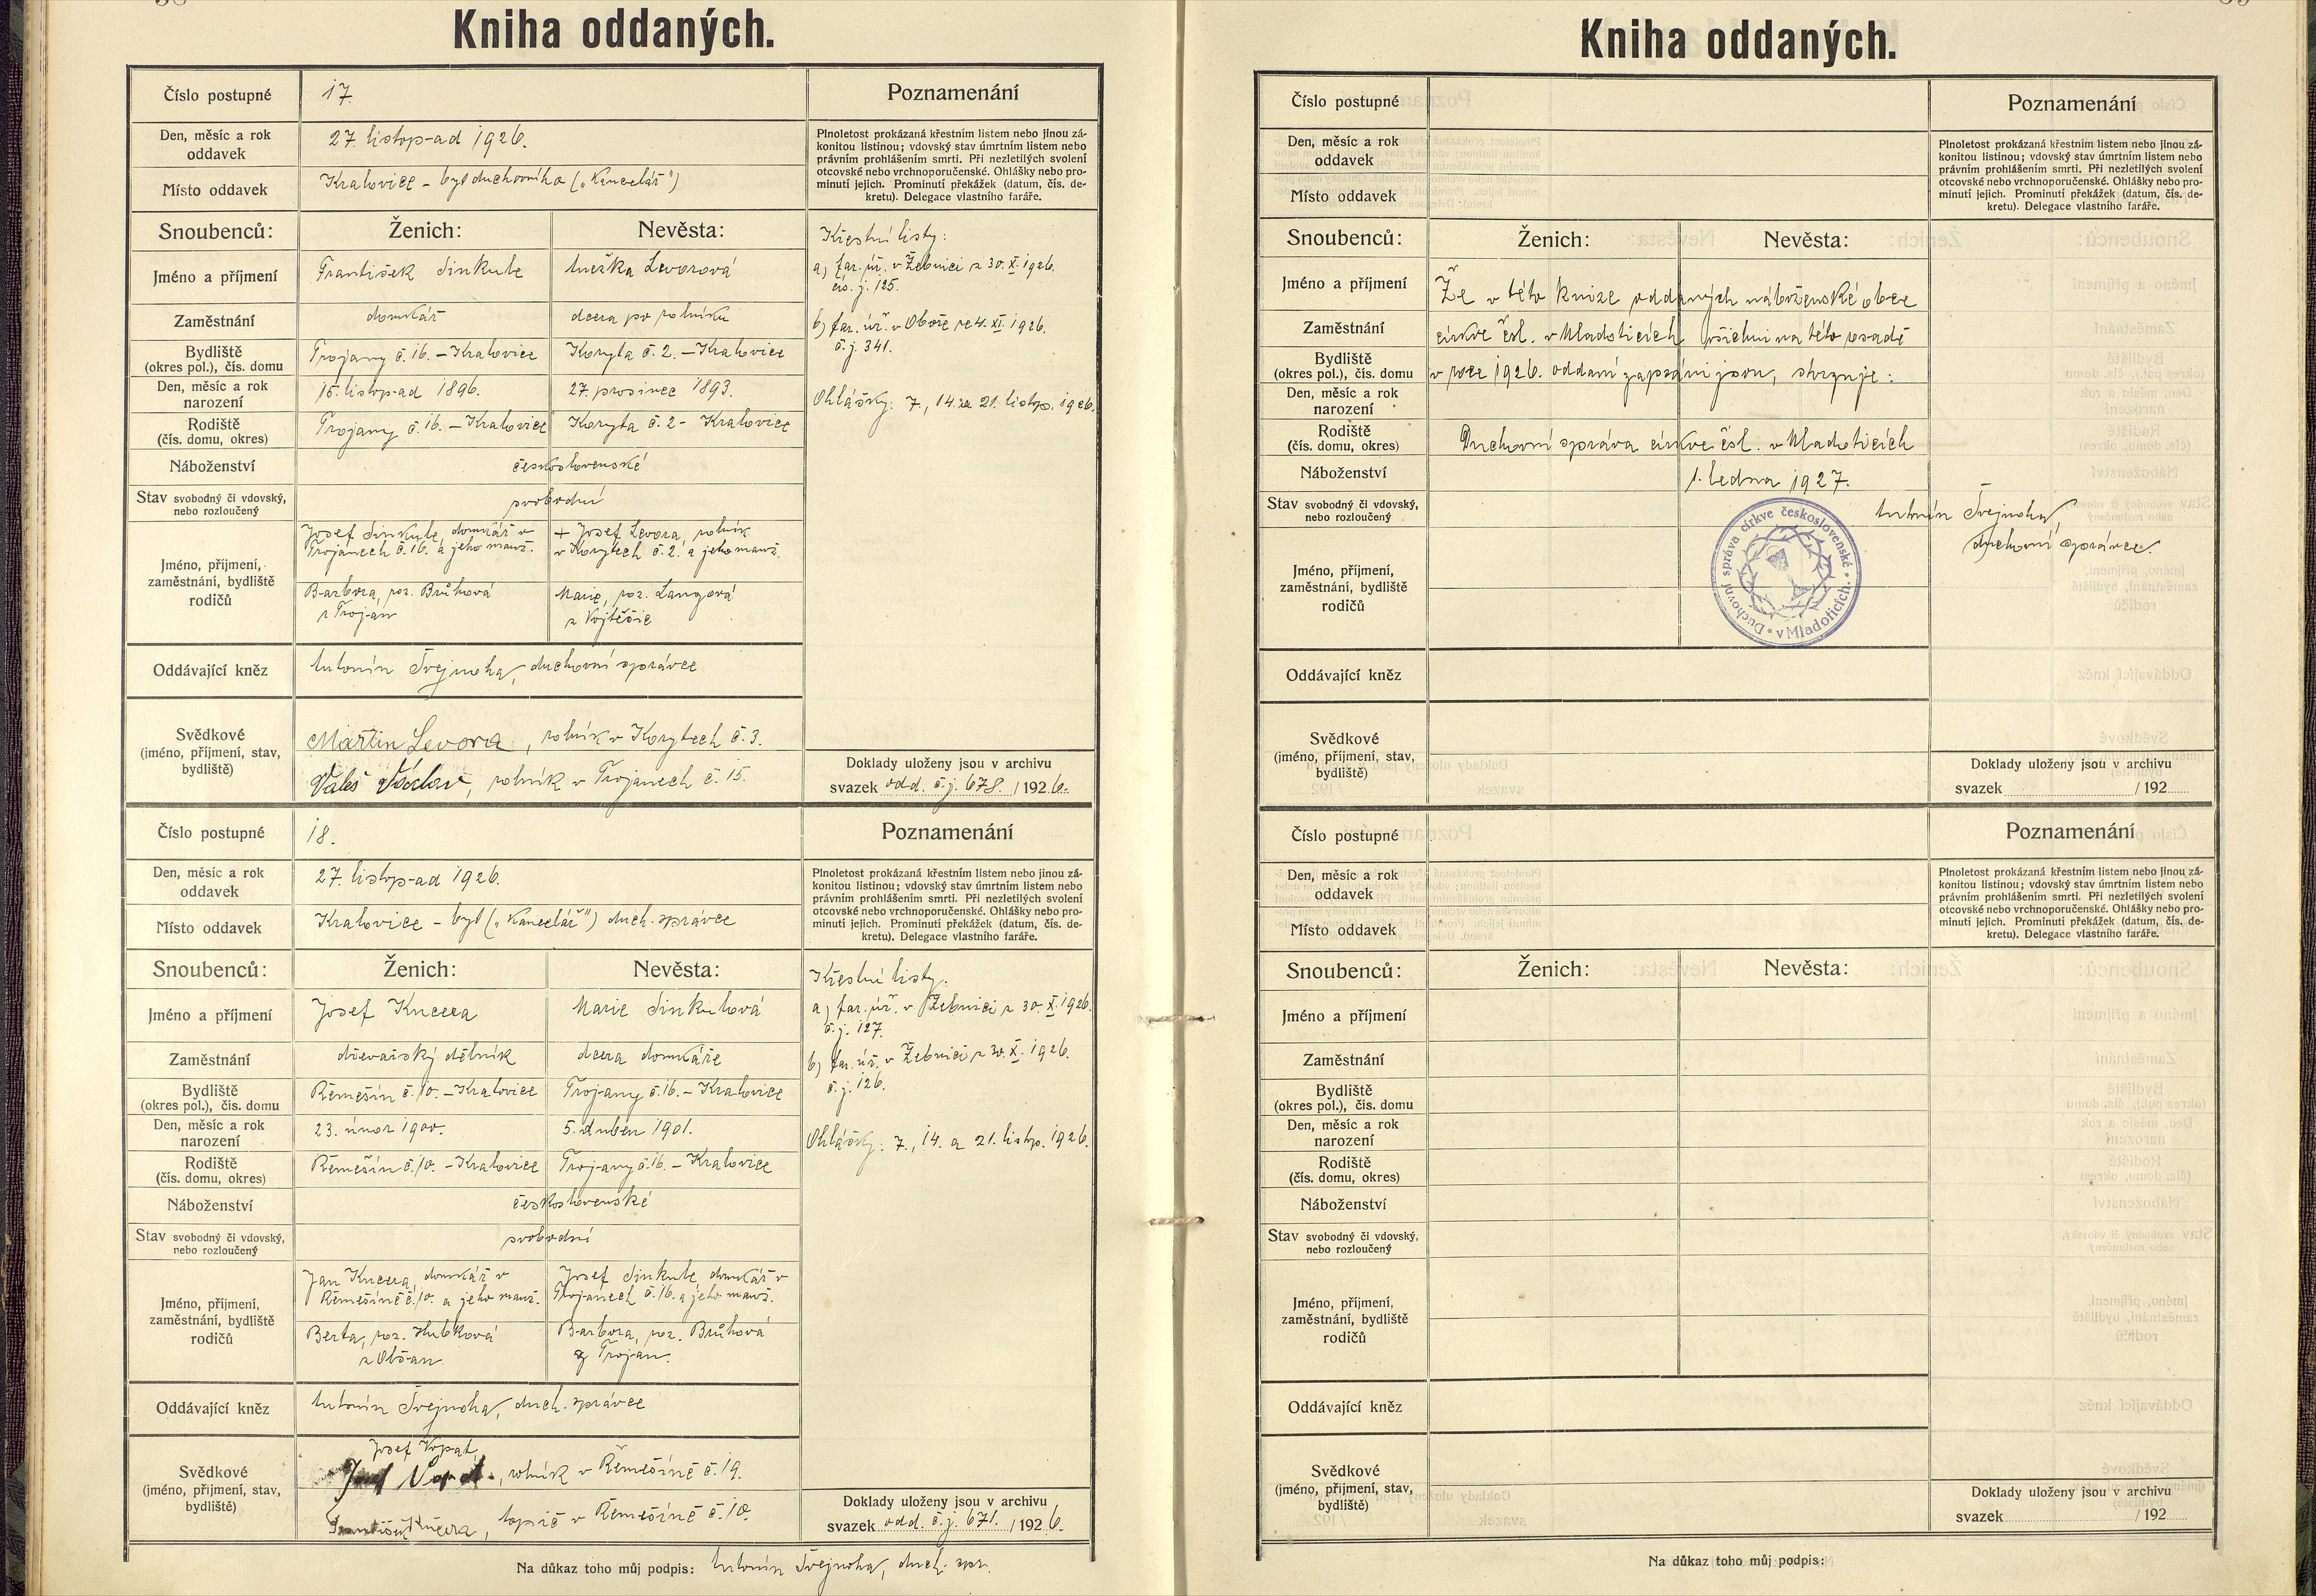 Kniha oddaných.
Číslo postupné
17.
Poznamenání
Den, měsíc a rok
oddavek
27. listopad 1926.
Plnoletost prokázaná křestním listem nebo jinou zá-
konitou listinou; vdovský stav úmrtním listem nebo
právním prohlášením smrti. Při nezletilých svolení
otcovské nebo vrchnoporučenské. Ohlášky nebo pro-
minutí jejich. Prominutí překážek (datum, čís. de-
kretu). Delegace vlastního faráře.
Místo oddavek
Kralovice - byt duchovního („Kancelář")
Snoubenců:
Ženich:
Nevěsta:
Jméno a příjmení
František Sinkule
Anežka Levorová
Křestní listy:
a) far. úř. v Žebnici z 30. X. 1926.
čís. j. 125.
b) far. úř. v Oboře ze 4. XI. 1926.
č. j. 341.
Ohlášky: 7., 14. a 21. listop. 1926.
Zaměstnání
domkář
dcera po rolníku
Bydliště
(okres pol.), čís. domu
Trojany č. 16. - Kralovice
Koryta č. 2. - Kralovice
Den, měsíc a rok
narození
15. listopad 1896.
27. prosinec 1893.
Rodiště
(čís. domu, okres)
Trojany č. 16. - Kralovice
Koryta č. 2 - Kralovice
Náboženství
československé
Stav svobodný či vdovský,
nebo rozloučený
svobodní
Jméno, příjmení,
zaměstnání, bydliště
rodičů
Josef Sinkule, domkář v
Trojanech č. 16. a jeho manž.
Barbora, roz. Brůhová
z Trojan
+ Josef Levora, rolník
v Korytech č. 2. a jeho manž.
Marie, roz. Langová
z Vojtěšic
Oddávající kněz
Antonín Švejnoha, duchovní správce
Svědkové
(jméno, příjmení, stav,
bydliště)
Martin Levora, rolník v Korytech č. 3.
Valeš Václav, rolník v Trojanech č. 15.
Doklady uloženy jsou v archivu
svazek odd. č. j. 678. / 1926.
Číslo postupné
18.
Poznamenání
Den, měsíc a rok
oddavek
27. listopad 1926.
Plnoletost prokázaná křestním listem nebo jinou zá-
konitou listinou; vdovský stav úmrtním listem nebo
právním prohlášením smrti. Při nezletilých svolení
otcovské nebo vrchnoporučenské. Ohlášky nebo pro-
minutí jejich. Prominutí překážek (datum, čís. de-
kretu). Delegace vlastního faráře.
Místo oddavek
Kralovice - byt („Kancelář") duch. správce
Snoubenců:
Ženich:
Nevěsta:
Jméno a příjmení
Josef Kucera
Marie Sinkulová
Křestní listy:
a) far. úř. v Žebnici z 30. X. 1926.
č. j. 127.
b) far. úř. v Žebnici z 30. X. 1926.
č. j. 126.
Ohlášky: 7., 14. a 21. listop. 1926.
Zaměstnání
dřevařský dělník
dcera domkáře
Bydliště
(okres pol.), čís. domu
Řemešín č. 10. - Kralovice
Trojany č. 16. - Kralovice
Den, měsíc a rok
narození
23. únor 1900.
5. duben 1901.
Rodiště
(čís. domu, okres)
Řemešín č. 10. - Kralovice
Trojany č. 16. - Kralovice
Náboženství
československé
Stav svobodný či vdovský,
nebo rozloučený
svobodní
Jméno, příjmení,
zaměstnání, bydliště
rodičů
Jan Kucera, domkář v
Řemešíně č. 10. a jeho manž.
Berta, roz. Hubková
z Obšan
Josef Sinkule, domkář v
Trojanech č. 16. a jeho manž.
Barbora, roz. Brůhová
z Trojan.
Oddávající kněz
Antonín Švejnoha, duch. správce
Svědkové
(jméno, příjmení, stav,
bydliště)
Josef Vopat,
Josef Vopat, rolník v Řemešíně č. 19.
František Kučera, topič v Řemešíně č. 10.
Doklady uloženy jsou v archivu
svazek odd. č. j. 671. / 1926.
Na důkaz toho můj podpis: Antonín Švejnoha, duch. spr.
Kniha oddaných.
Číslo postupné
Poznamenání
Den, měsíc a rok
oddavek
Plnoletost prokázaná křestním listem nebo jinou zá-
konitou listinou; vdovský stav úmrtním listem nebo
právním prohlášením smrti. Při nezletilých svolení
otcovské nebo vrchnoporučenské. Ohlášky nebo pro-
minutí jejich. Prominutí překážek (datum, čís. de-
kretu). Delegace vlastního faráře.
Místo oddavek
Snoubenců:
Ženich:
Nevěsta:
Jméno a příjmení
Že v této knize oddaných náboženské obce
Zaměstnání
církve čsl. v Mladoticích všichni na této osadě
Bydliště
(okres pol.), čís. domu
v roce 1926. oddaní zapsáni jsou, stvrzuje:
Den, měsíc a rok
narození
Rodiště
(čís. domu, okres)
Duchovní správa církve čsl. v Mladoticích
Náboženství
1. ledna 1927.
Stav svobodný či vdovský,
nebo rozloučený
Antonín Švejnoha,
duchovní správce.
Duchovní správa církve československé
v Mladoticích.
Jméno, příjmení,
zaměstnání, bydliště
rodičů
Oddávající kněz
Svědkové
(jméno, příjmení, stav,
bydliště)
Doklady uloženy jsou v archivu
svazek / 192
Číslo postupné
Poznamenání
Den, měsíc a rok
oddavek
Plnoletost prokázaná křestním listem nebo jinou zá-
konitou listinou; vdovský stav úmrtním listem nebo
právním prohlášením smrti. Při nezletilých svolení
otcovské nebo vrchnoporučenské. Ohlášky nebo pro-
minutí jejich. Prominutí překážek (datum, čís. de-
kretu). Delegace vlastního faráře.
Místo oddavek
Snoubenců:
Ženich:
Nevěsta:
Jméno a příjmení
Zaměstnání
Bydliště
(okres pol.), čís. domu
Den, měsíc a rok
narození
Rodiště
(čís. domu, okres)
Náboženství
Stav svobodný či vdovský,
nebo rozloučený
Jméno, příjmení,
zaměstnání, bydliště
rodičů
Oddávající kněz
Svědkové
(jméno, příjmení, stav,
bydliště)
Doklady uloženy jsou v archivu
svazek / 192
Na důkaz toho můj podpis: